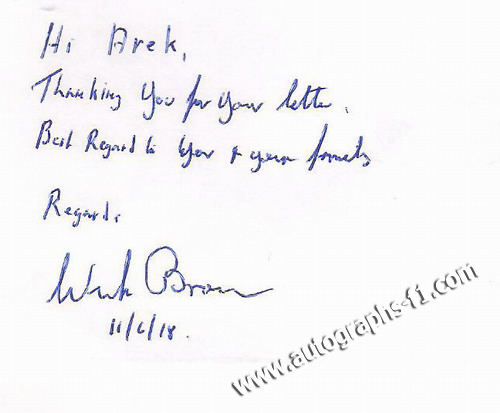 Hi Arek,
Thanking you for your letter.
Best Regard to you + your family
Regards,
Wink Brown
11/6/18.
www.autographs-f1.com